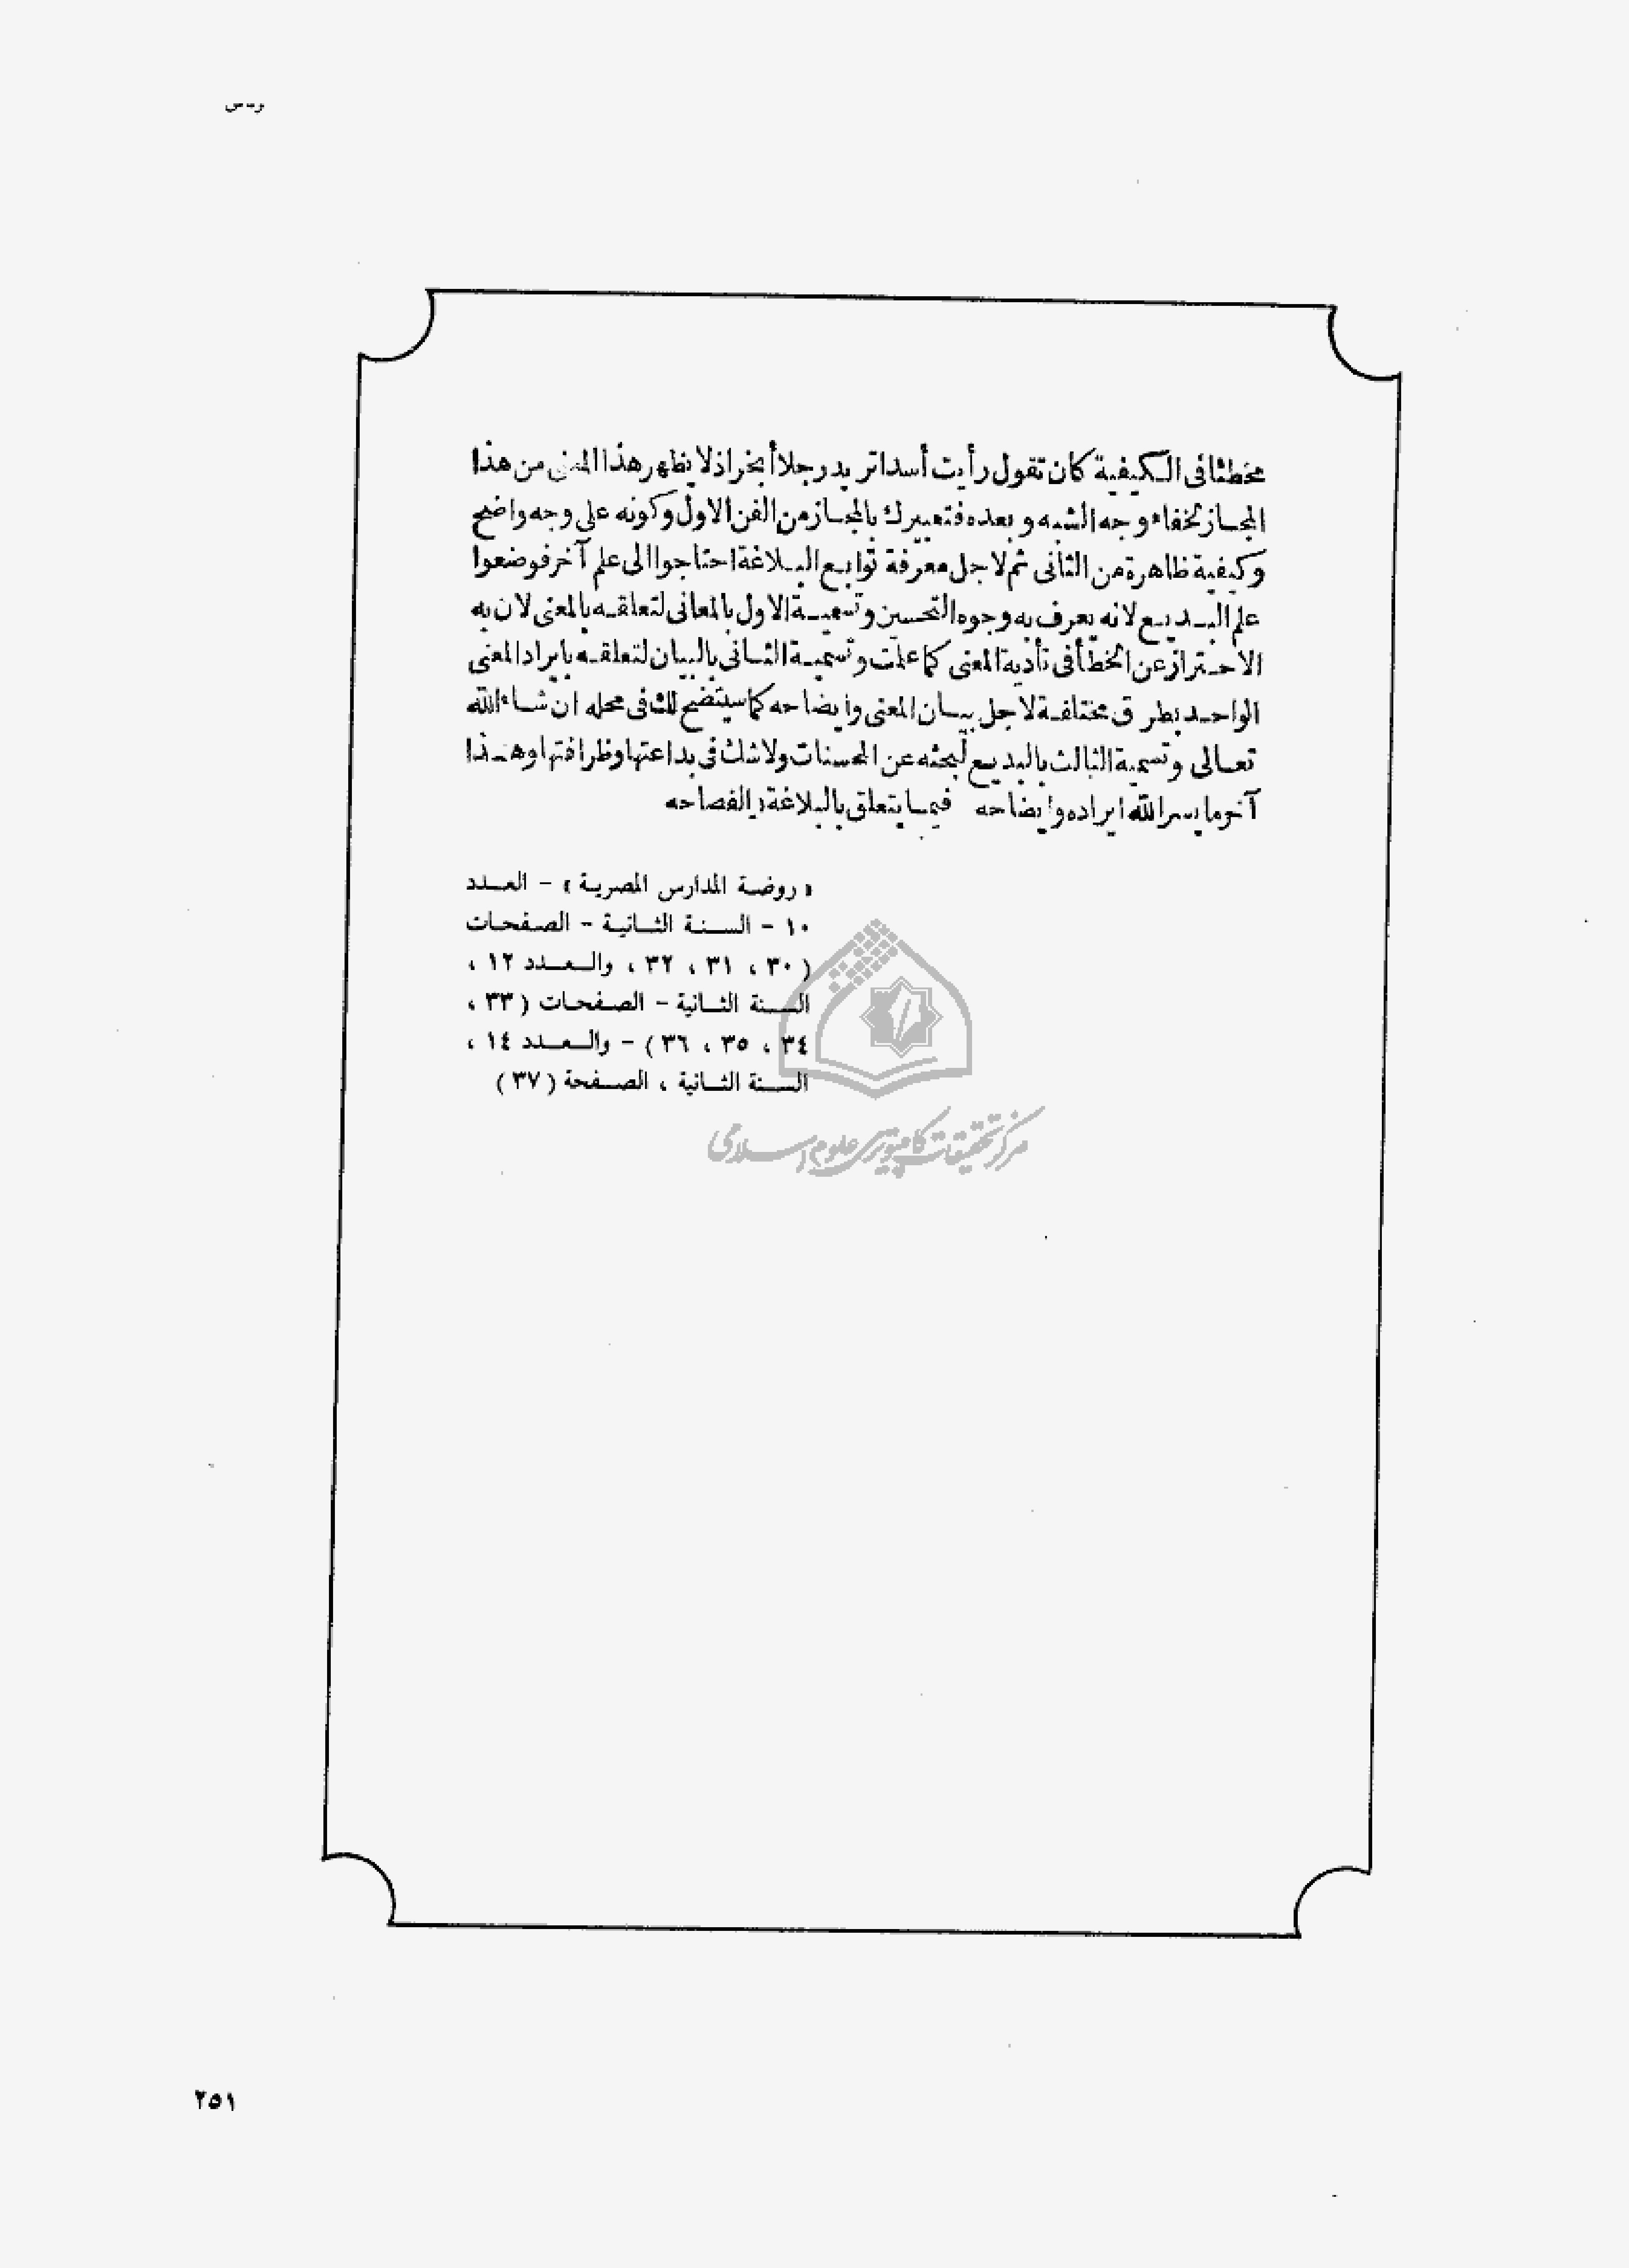 مخطئا فى الكيفية كان تقول رأيت أسدا تريد رجلا أبخر اذ لا يظهر هذا المعنى من هذا
المجاز لخفاء وجه الشبه وبعده فتعبيرك بالمجاز من الفن الاول وكونه على وجه واضح
وكيفية ظاهرة من الثانى ثم لاجل معرفة توابع البلاغة احتاجوا الى علم آخر فوضعوا
علم البديع لانه يعرف به وجوه التحسين وتسمية الاول بالمعانى لتعلقه بالمعنى لان به
الاحتراز عن الخطأ فى تأدية المعنى كما علمت وتسمية الثانى بالبيان لتعلقه بايراد المعنى
الواحد بطرق مختلفة لاجل بيان المعنى وايضاحه كما سيتضح لك فى محله ان شاء الله
تعالى وتسمية الثالث بالبديع لبحثه عن المحسنات ولا شك فى بداعتها وظرافتها وهذا
آخر ما يسر الله ايراده وايضاحه فيما يتعلق بالبلاغة والفصاحه
« روضة المدارس المصرية » - العدد
١٠ - السنة الثانية - الصفحات
( ٣٠ ، ٣١ ، ٣٢ ، والعدد ١٢ ،
السنة الثانية - الصفحات ( ٣٣ ،
٣٤ ، ٣٥ ، ٣٦ ) - والعدد ١٤ ،
السنة الثانية ، الصفحة ( ٣٧ )
مركز تحقيقات كامپيوترى علوم اسلامى
٢٥١